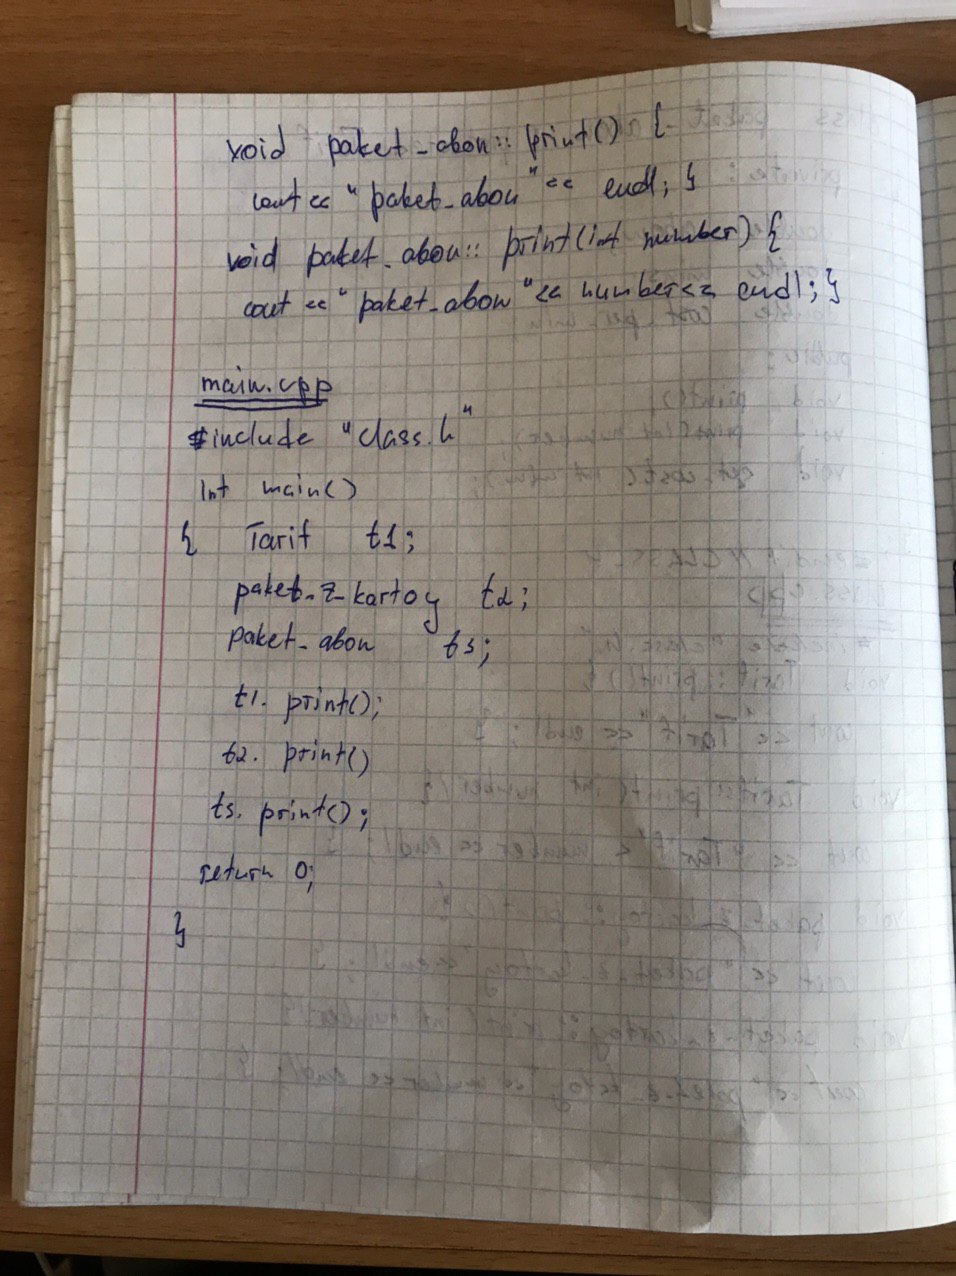 void paket_abon :: print() {
cout << "paket_abon" << endl; }
void paket_abon :: print(int number) {
cout << "paket_abon" << number << endl; }
main.cpp
#include "class.h"
int main()
{ Tarif t1;
paket_z_kartoy t2;
paket_abon t3;
t1. print();
t2. print()
t3. print();
return 0;
}